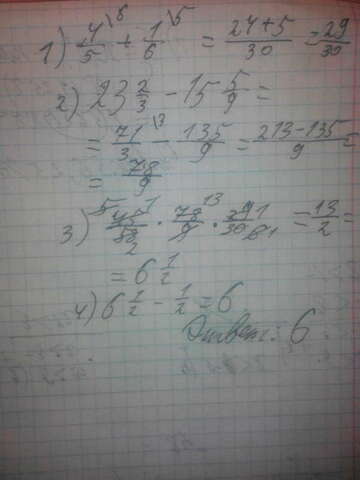 1) 4/5 \6 + 1/6 \5 = 24+5/30 = 29/30
2) 23 2/3 - 15 5/9 =
= 71/3 \3 - 135/9 = 213-135/9 =
= 78/9
3) 45/58 · 78/9 · 29/30 = 13/2 =
= 6 1/2
4) 6 1/2 - 1/2 = 6
Ответ: 6